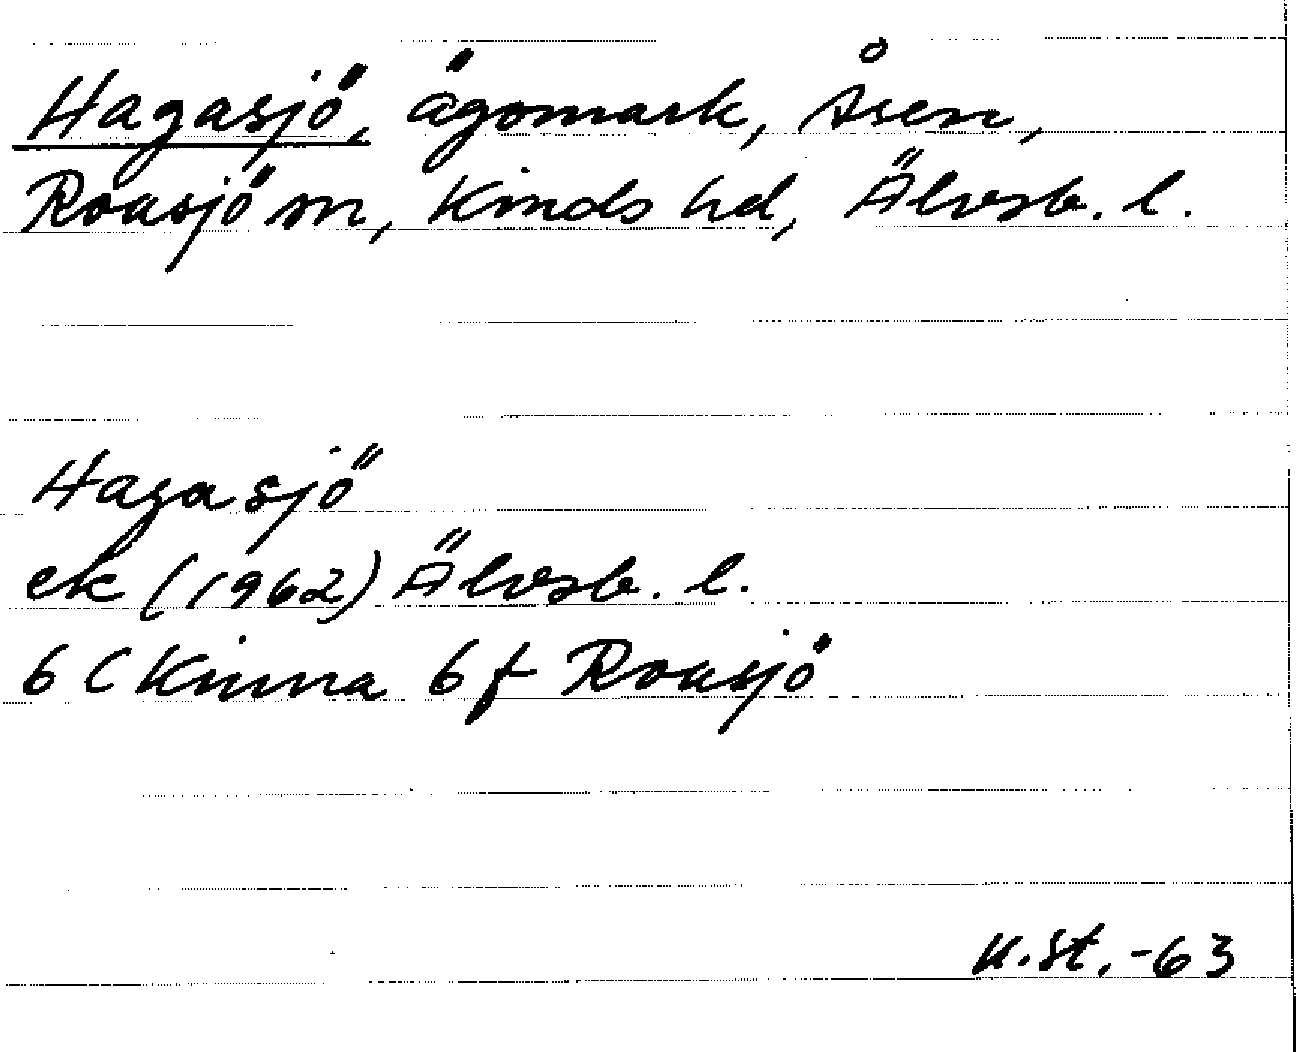 Hagasjö, ägomark, Åsen,
Roasjö sn, Kinds hd, Älvsb. l.
Hagasjö
ek (1962) Älvsb. l.
6 C Kinna 6 f Roasjö
K.St. -63